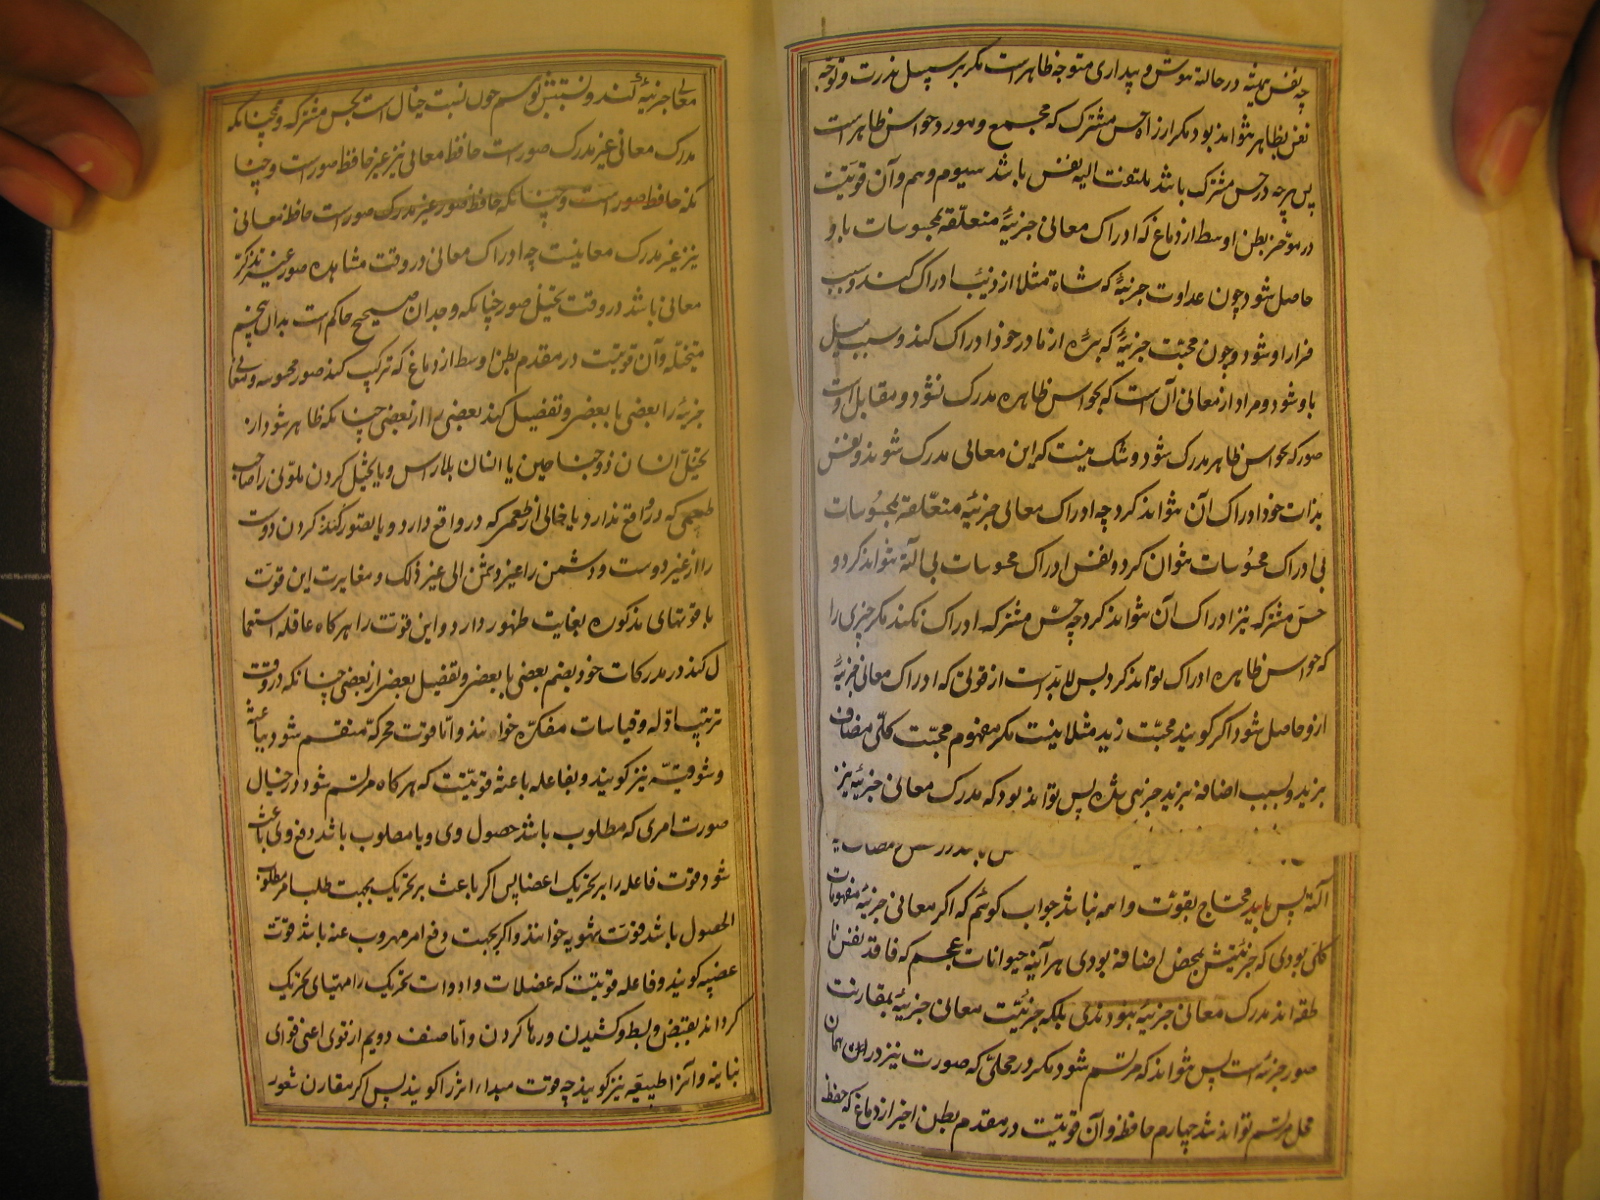 چه نفس همیشه در حالة هوش و بیداری متوجه ظاهر است مکر بر سبیل ندرت و توجه
نفس بظاهر نتواند بود مکر از راه حس مشترک که مجمع و مورد حواس ظاهر است
پس هرچه در حس مشترک باشد ملتفت الیه نفس باشد سیوم وهم و آن قوتیست
در مؤخر بطن اوسط از دماغ که ادراک معانی جزئیۀ متعلقه بمحسوسات باو
حاصل شود چون عداوت جزئیۀ که شاة مثلا از ذئب ادراک کند و سبب
فرار او شود و چون محبت جزئیۀ که بره از مادر خود ادراک کند و سبب میل
باو شود و مراد از معانی آن است که بحواس ظاهره مدرک نشود و مقابل اوست
صور که بحواس ظاهر مدرک شود و شک نیست که این معانی مدرک شوند و نفس
بذات خود ادراک آن نتواند کرد چه ادراک معانی جزئیه متعلقه بمحسوسات
بی ادراک محسوسات نتوان کرد و نفس ادراک محسوسات بی آلة نتواند کرد و
حس مشترکه نیز ادراک آن نتواند کرد چه حس مشترکه ادراک نکند مکر چیزی را
که حواس ظاهره ادراک تواند کرد پس لابد است از قوتی که ادراک معانی جزئیۀ
ازو حاصل شود اکر کویند محبت زید مثلا نیست مکر مفهوم محبت کلی مضاف
بزید و بسبب اضافه بزید جزئی شده پس تواند بود که مدرک معانی جزئیه نیز
آلة پس محتاج بقوت واهمه نباشد جواب کوئیم که اکر معانی جزئیه مفهومات
کلی بودی که جزئیتش بمحض اضافه بودی هر آینه حیوانات عجم که فاقد نفس نا
طقه اند مدرک معانی جزئیه نبودندی بلکه جزئیت معانی جزئیه بمقارنت
صور جزئیه است پس نتواند که مرتسم شود مکر در محلی که صورت نیز در آن همان
محل مرتسم تواند شد چهارم حافظه و آن قوتیست در مقدم بطن اخیر از دماغ که حفظ
معانی جزئیۀ کند و نسبتش بوهم چون نسبت خیال است بحس مشترکه و همچنانکه
مدرک معانی غیر مدرک صور است حافظ معانی نیز غیر حافظ صور است و چنا
نکه حافظ صور است و چنانکه حافظ صور غیر مدرک صور است حافظ معانی
نیز غیر مدرک معانیست چه ادراک معانی در وقت مشاهده صور غیر تذکر
معانی باشد در وقت تخیل صور چنانکه وجدان صحیح حاکم است بدان پنجم
متخیله و آن قوتیست در مقدم بطن اوسط از دماغ که ترکیب کند صور محسوسه و معانی
جزئیه را بعضی با بعضی و تفصیل کند بعضی را از بعضی چنانکه ظاهر شود از
تخیل انسان ذو جناحین یا انسان بلا راس و یا تخیل کردن ملونی را صاحب
طعمی که در واقع ندارد یا خالی از طعمی که در واقع دارد و یا بصور کند کردن دوست
را از غیر دوست و دشمن را غیر دشمن الی غیر ذلک و مغایرت این قوت
با قوتهای مذکوره بغایت ظهور دارد و این قوت را هرکاه عاقله استعما
ل کند در مدرکات خود بضم بعضی با بعضی و تفصیل بعضی از بعضی چنانکه در وقت
ترتیب ادله و قیاسات مفکره خوانند و اما قوت محرکه منقسم شود بباعثه
و شوقیه نیز کویند و بفاعله باعثه قوتیست که هرکاه مرتسم شود در خیال
صورت امری که مطلوب باشد حصول وی و یا مطلوب باشد دفع وی باعث
شود قوت فاعله را بر تحریک اعضا پس اکر باعث بر تحریک بجهت طلب امر مطلوب
الحصول باشد قوت شهویه خوانند و اکر بجهت دفع امر مهروب عنه باشد قوت
غضبیه کویند و فاعله قوتیست که عضلات و ادوات تحریک را مهیای تحریک
کرداند بقبض و بسط و کشیدن و رها کردن و اما صنف دویم از قوی اعنی قوای
نباتیه و آنرا طبیعیه نیز کویند چه قوت مبداء اثر را کویند پس اکر مقارن شعور